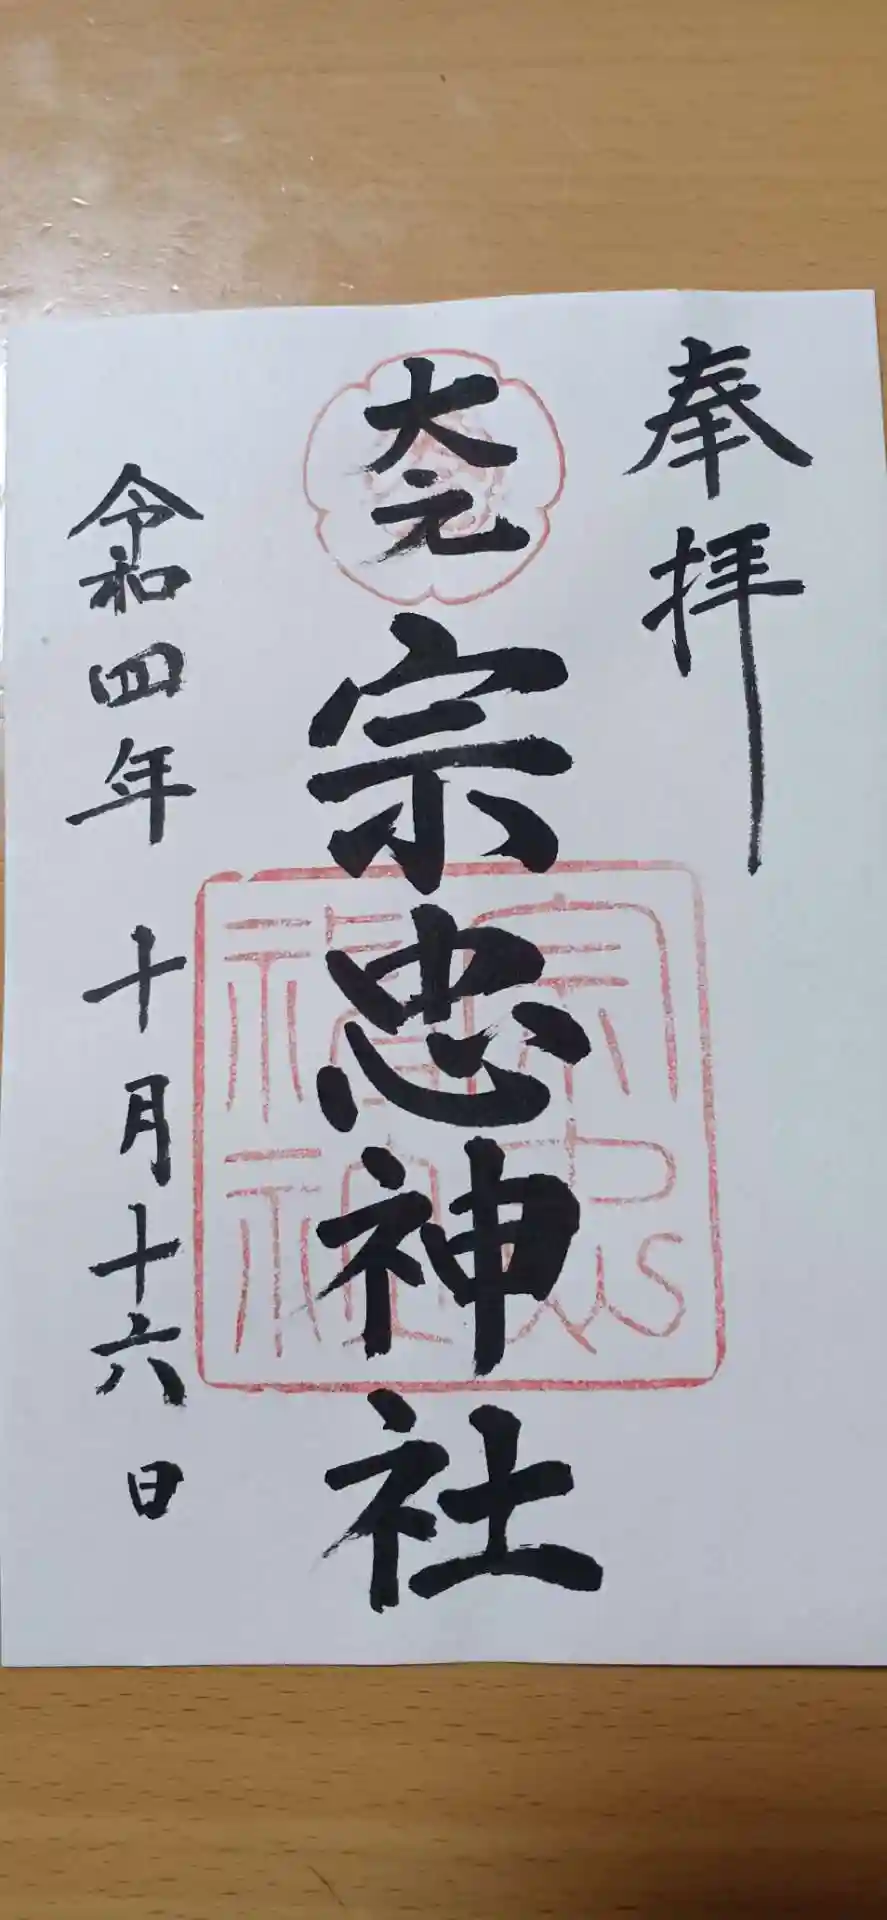 奉拝
大元
宗忠神社
令和四年 十月十六日